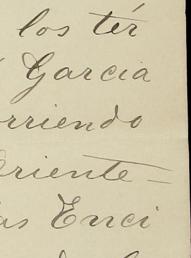 los tér
Garcia
rriendo
riente-
as Enci